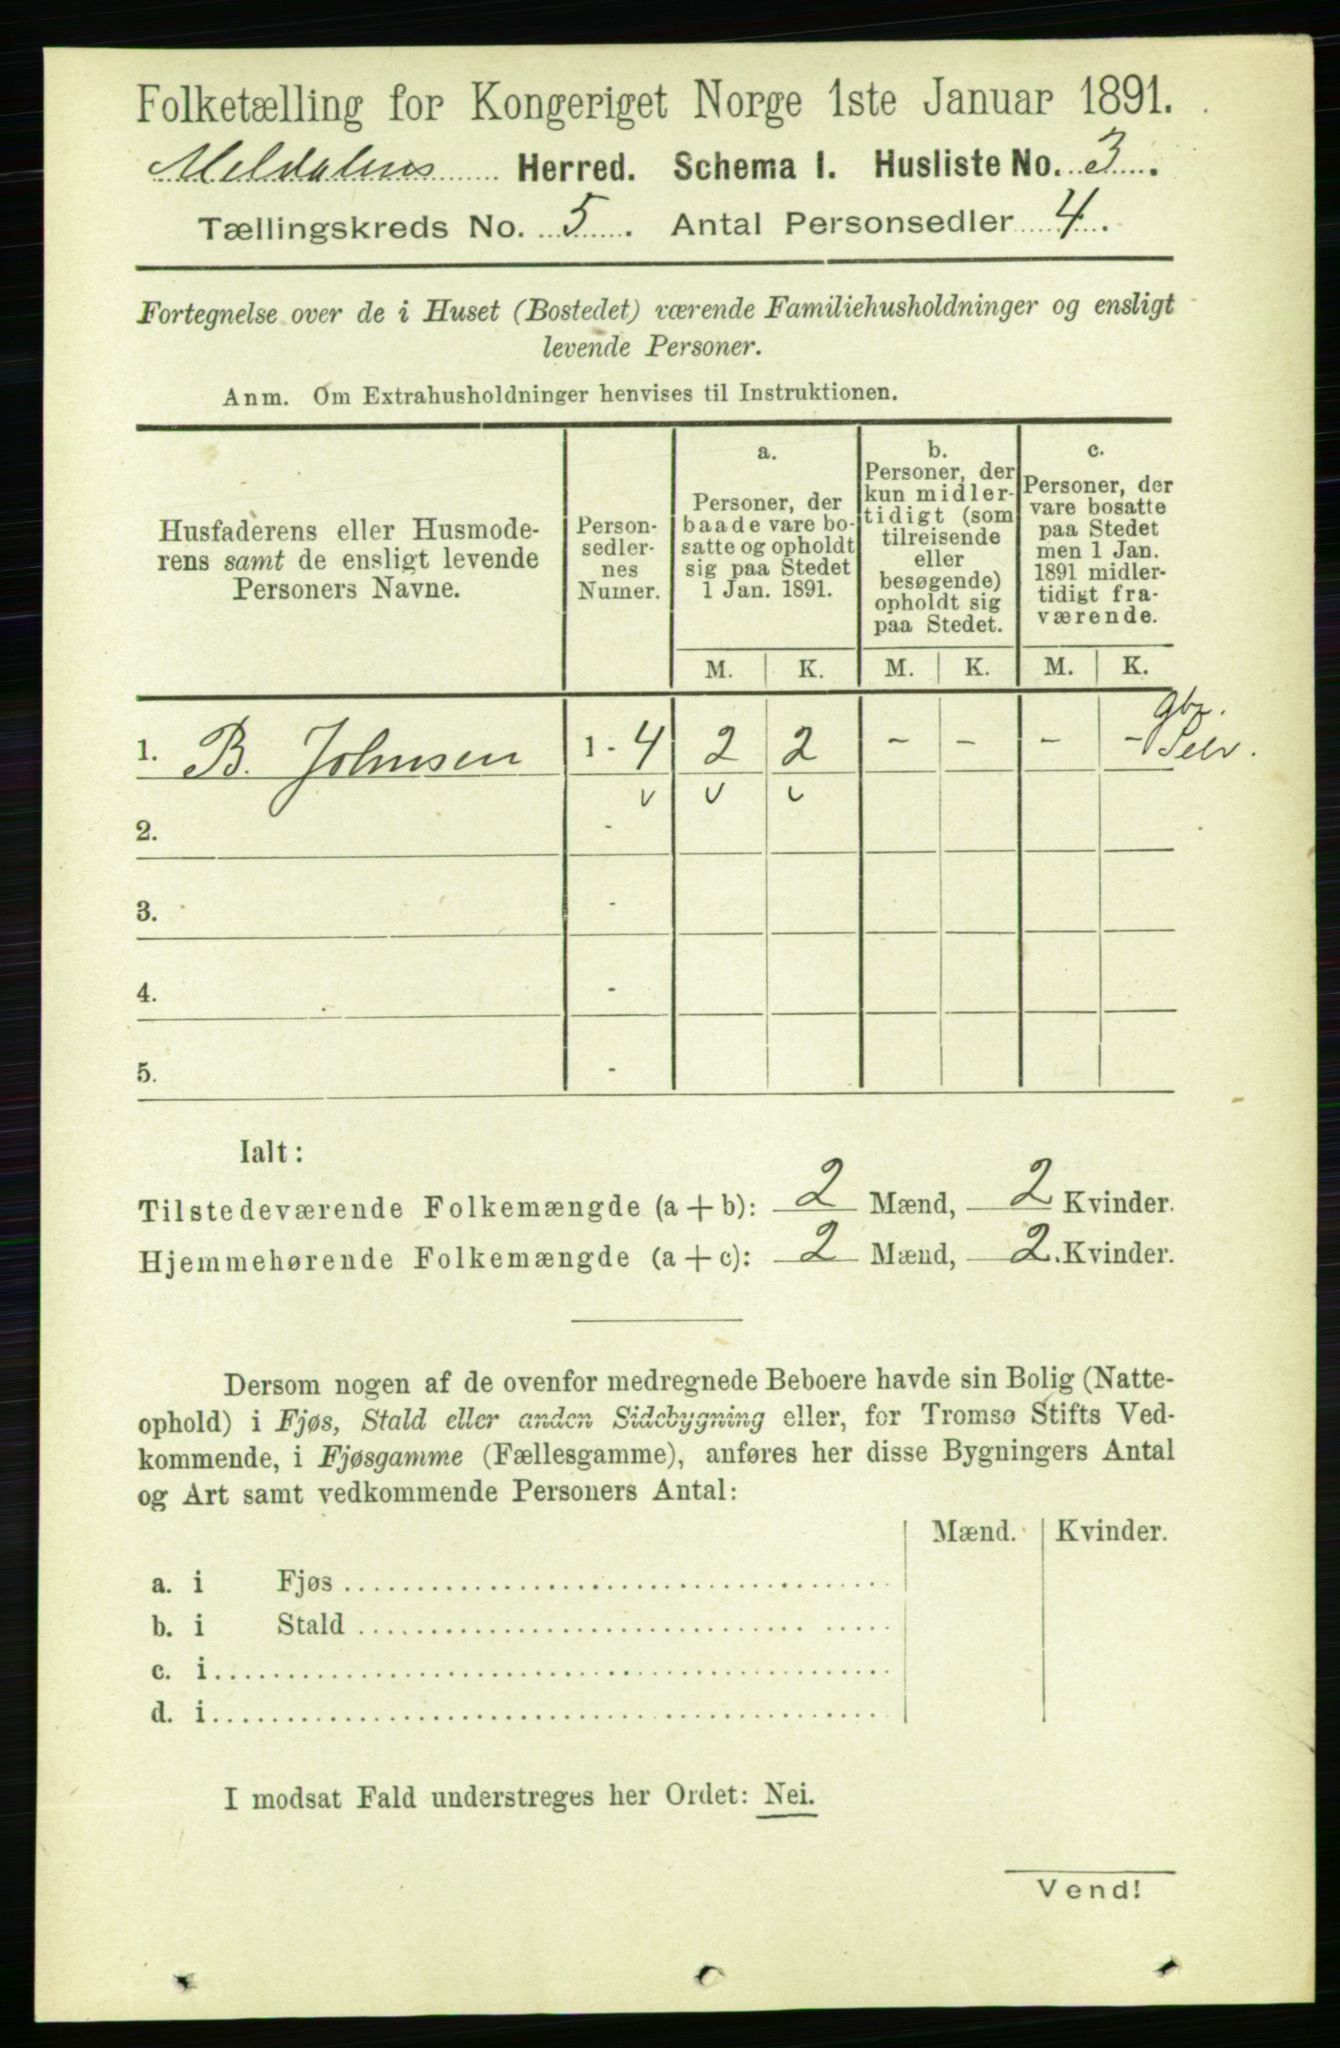 Folketælling for Kongeriget Norge 1ste Januar 1891.
Meldalens Herred. Schema I. Husliste No. 3.
Tællingskreds No. 5. Antal Personsedler 4.
Fortegnelse over de i Huset (Bostedet) værende Familiehusholdninger og ensligt
levende Personer.
Anm. Om Extrahusholdninger henvises til Instruktionen.
Husfaderens eller Husmode-
rens samt de ensligt levende
Personers Navne.
Person-
sedler-
nes
Numer.
a.
Personer, der
baade vare bo-
satte og opholdt
sig paa Stedet
1 Jan. 1891.
b.
Personer, der
kun midler-
tidigt (som
tilreisende
eller
besøgende)
opholdt sig
paa Stedet.
c.
Personer, der
vare bosatte
paa Stedet
men 1 Jan.
1891 midler-
tidigt fra-
værende.
M. K. M. K. M. K.
1. B. Johnsen 1 - 4 2 2 - - - - Gbr.
Selv.
v v v
2. -
3. -
4. -
5. -
Ialt:
Tilstedeværende Folkemængde (a + b): 2 Mænd, 2 Kvinder.
Hjemmehørende Folkemængde (a + c): 2 Mænd, 2. Kvinder.
Dersom nogen af de ovenfor medregnede Beboere havde sin Bolig (Natte-
ophold) i Fjøs, Stald eller anden Sidebygning eller, for Tromsø Stifts Ved-
kommende, i Fjøsgamme (Fællesgamme), anføres her disse Bygningers Antal
og Art samt vedkommende Personers Antal:
Mænd. Kvinder.
a. i Fjøs
b. i Stald
c. i
d. i
I modsat Fald understreges her Ordet: Nei.
Vend!